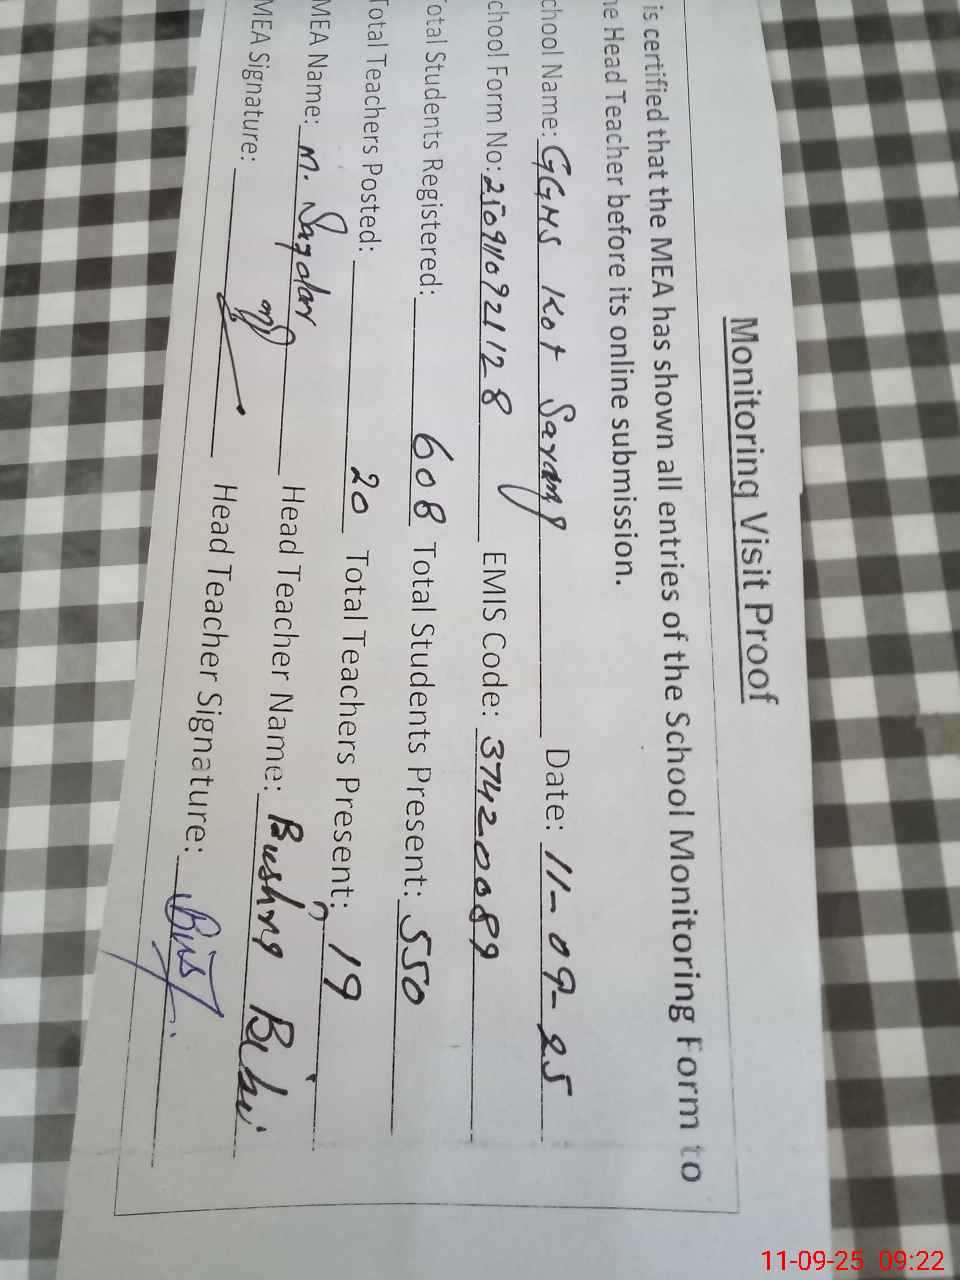 Monitoring Visit Proof
is certified that the MEA has shown all entries of the School Monitoring Form to
he Head Teacher before its online submission.
chool Name: GGHS Kot Sarang Date: 11-09-25
chool Form No: 250911092128 EMIS Code: 37420089
otal Students Registered: 608 Total Students Present: 550
Total Teachers Posted: 20 Total Teachers Present: 19
MEA Name: M. Head Teacher Name: Bushra Bibi
MEA Signature: Head Teacher Signature:
11-09-25 09:22